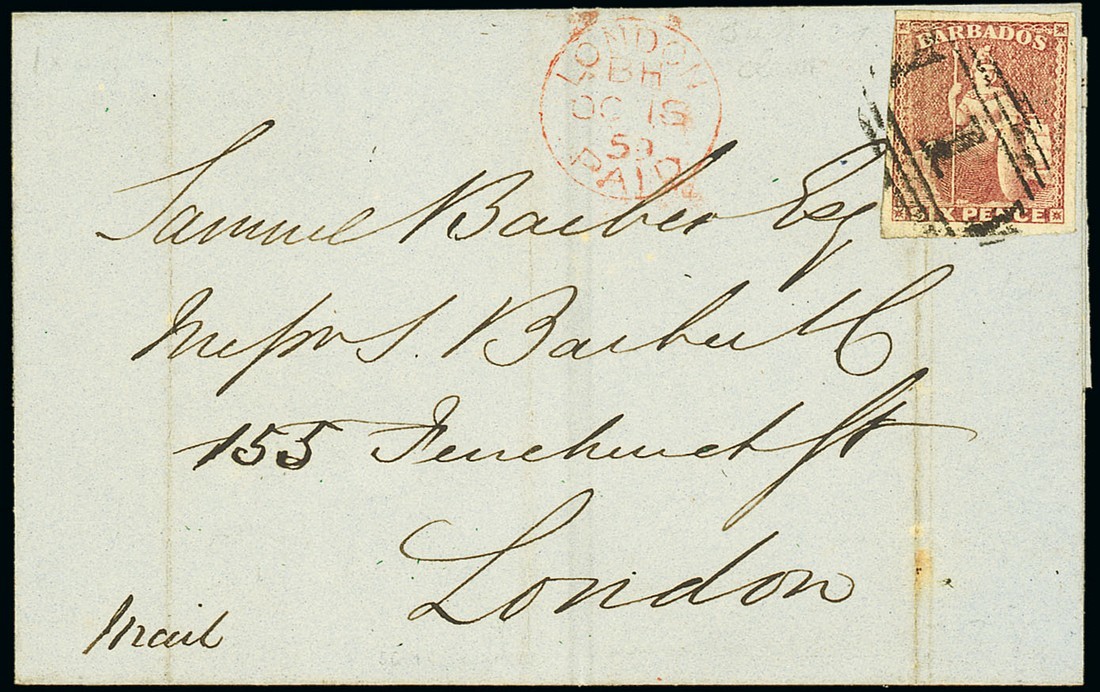 BARBADOS
SIX PENCE
LONDON
BH
OC 18
59
PAID
Samuel Barber Esq
Messrs S. Barber & C
155 Fenchurch St
London
Mail